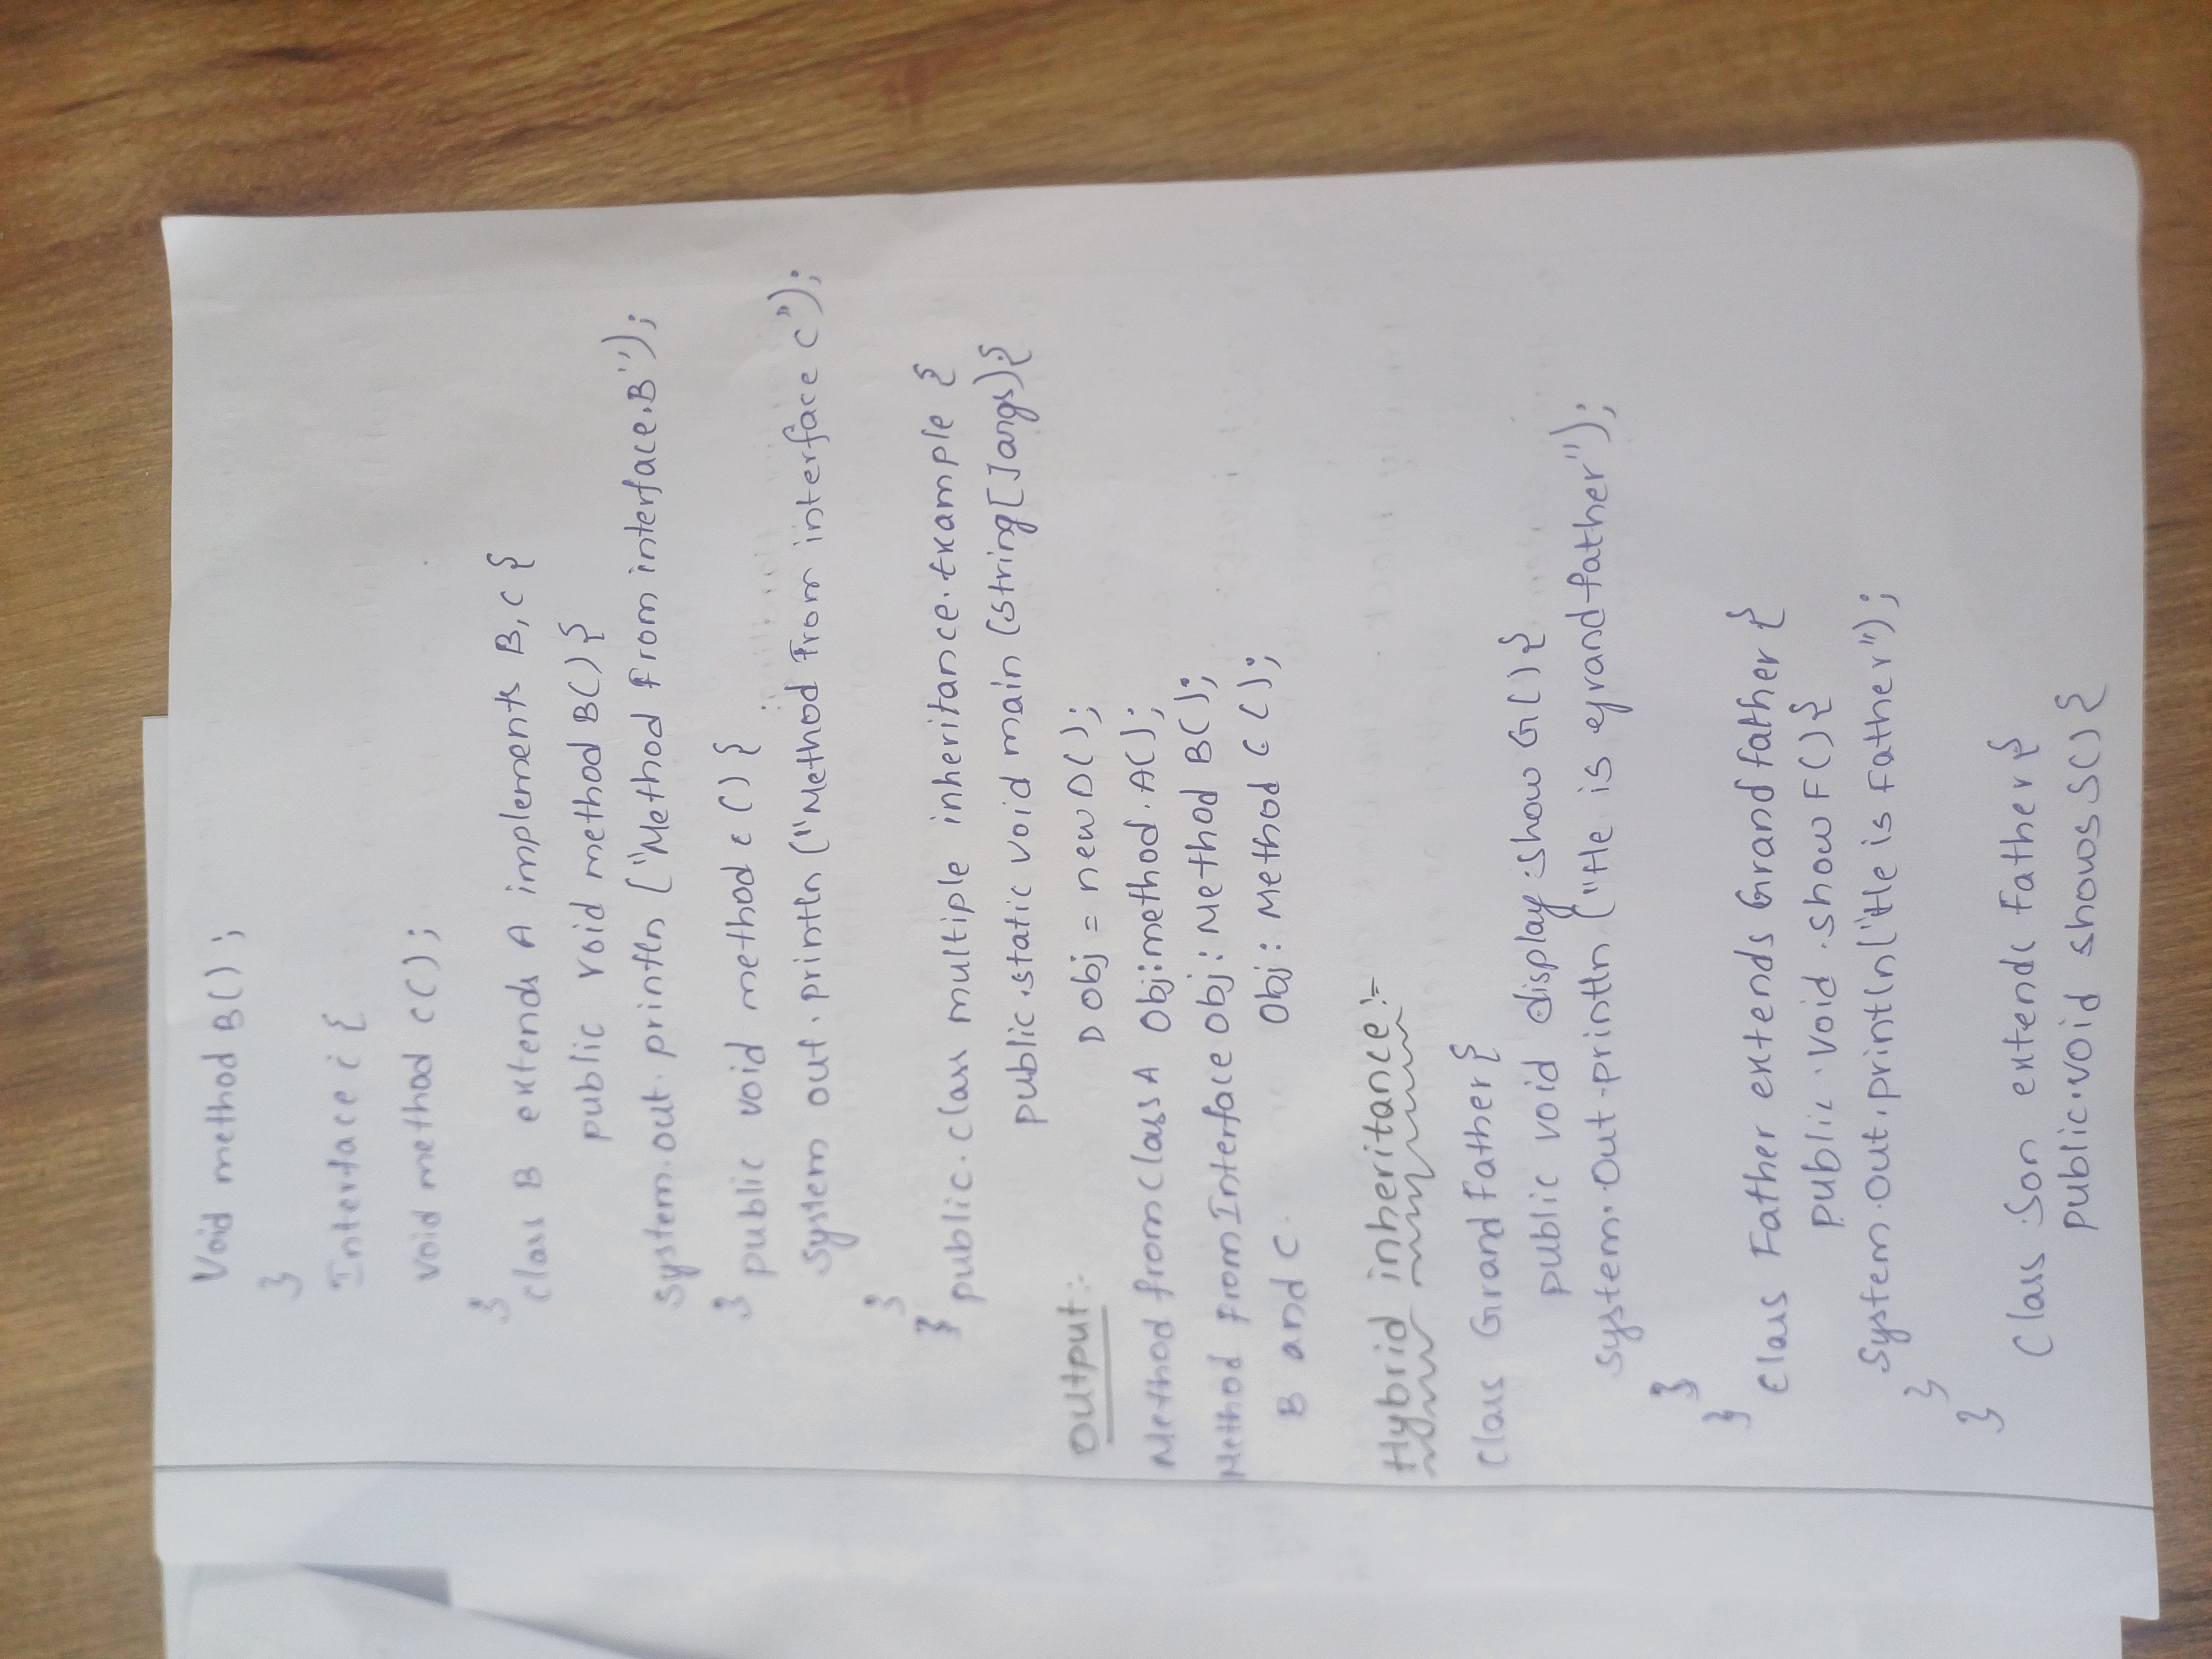 Void method B() ;
}
Interface c {
void method c();
}
class B extends A implements B, C {
public void method B() {
system.out.println ("Method from interface.B");
} public void method c () {
system out.println ("Method From interface c");
}
} public.class multiple inheritance.Example {
public.static void main (String[] args) {
Output:-
D obj = new D();
Method from class A
Obj:method.A();
Method from Interface
Obj: Method B();
B and C.
Obj: Method C();
Hybrid inheritance:-
Class Grand Father {
public void display:show G() {
System.Out.println ("He is grandfather");
}
}
Class Father extends Grand father {
public.Void.show F() {
System.Out.println("He is Father");
}
}
Class Son extends Father {
public.void shows S() {